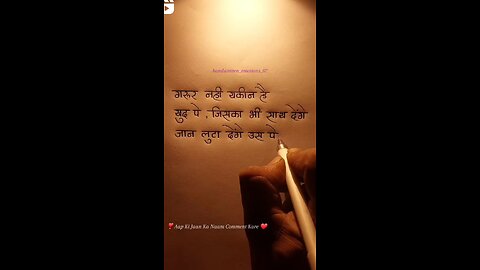 गरूर नही यकीन है
खुद पे , जिसका भी साथ देंगे
जान लुटा देंगे उस पे
Aap Ki Jaan Ka Naam Comment Kare